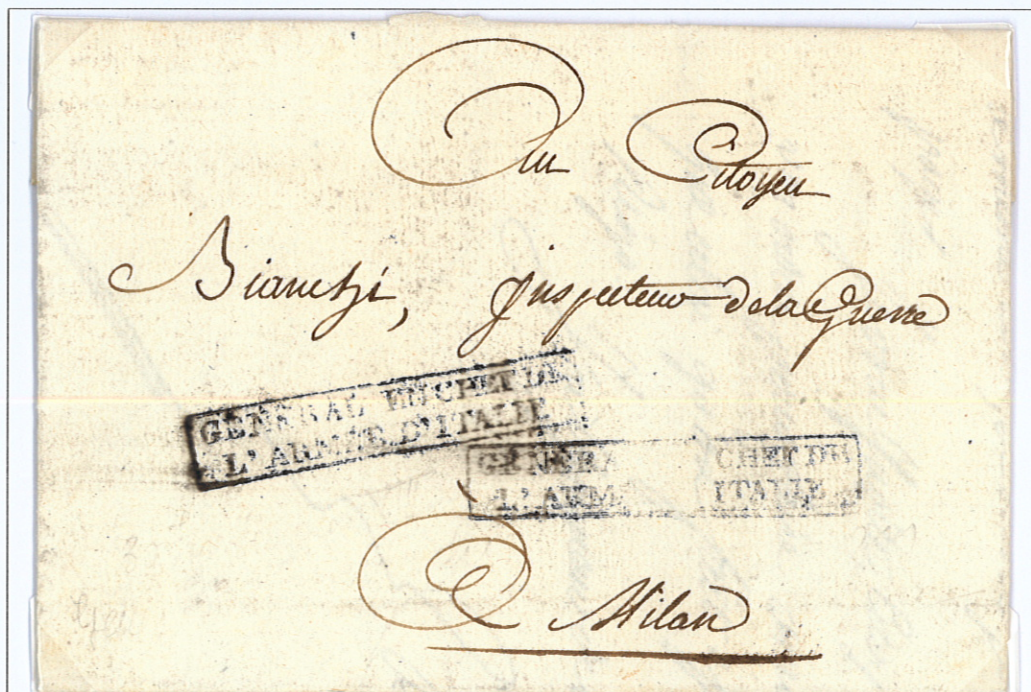 Au Citoyen
Bianchi, Inspecteur de la Guerre
GENERAL EN CHEF DE
L'ARMÉE D'ITALIE
GENERA CHEF DE
L'ARM ITALIE
A Milan